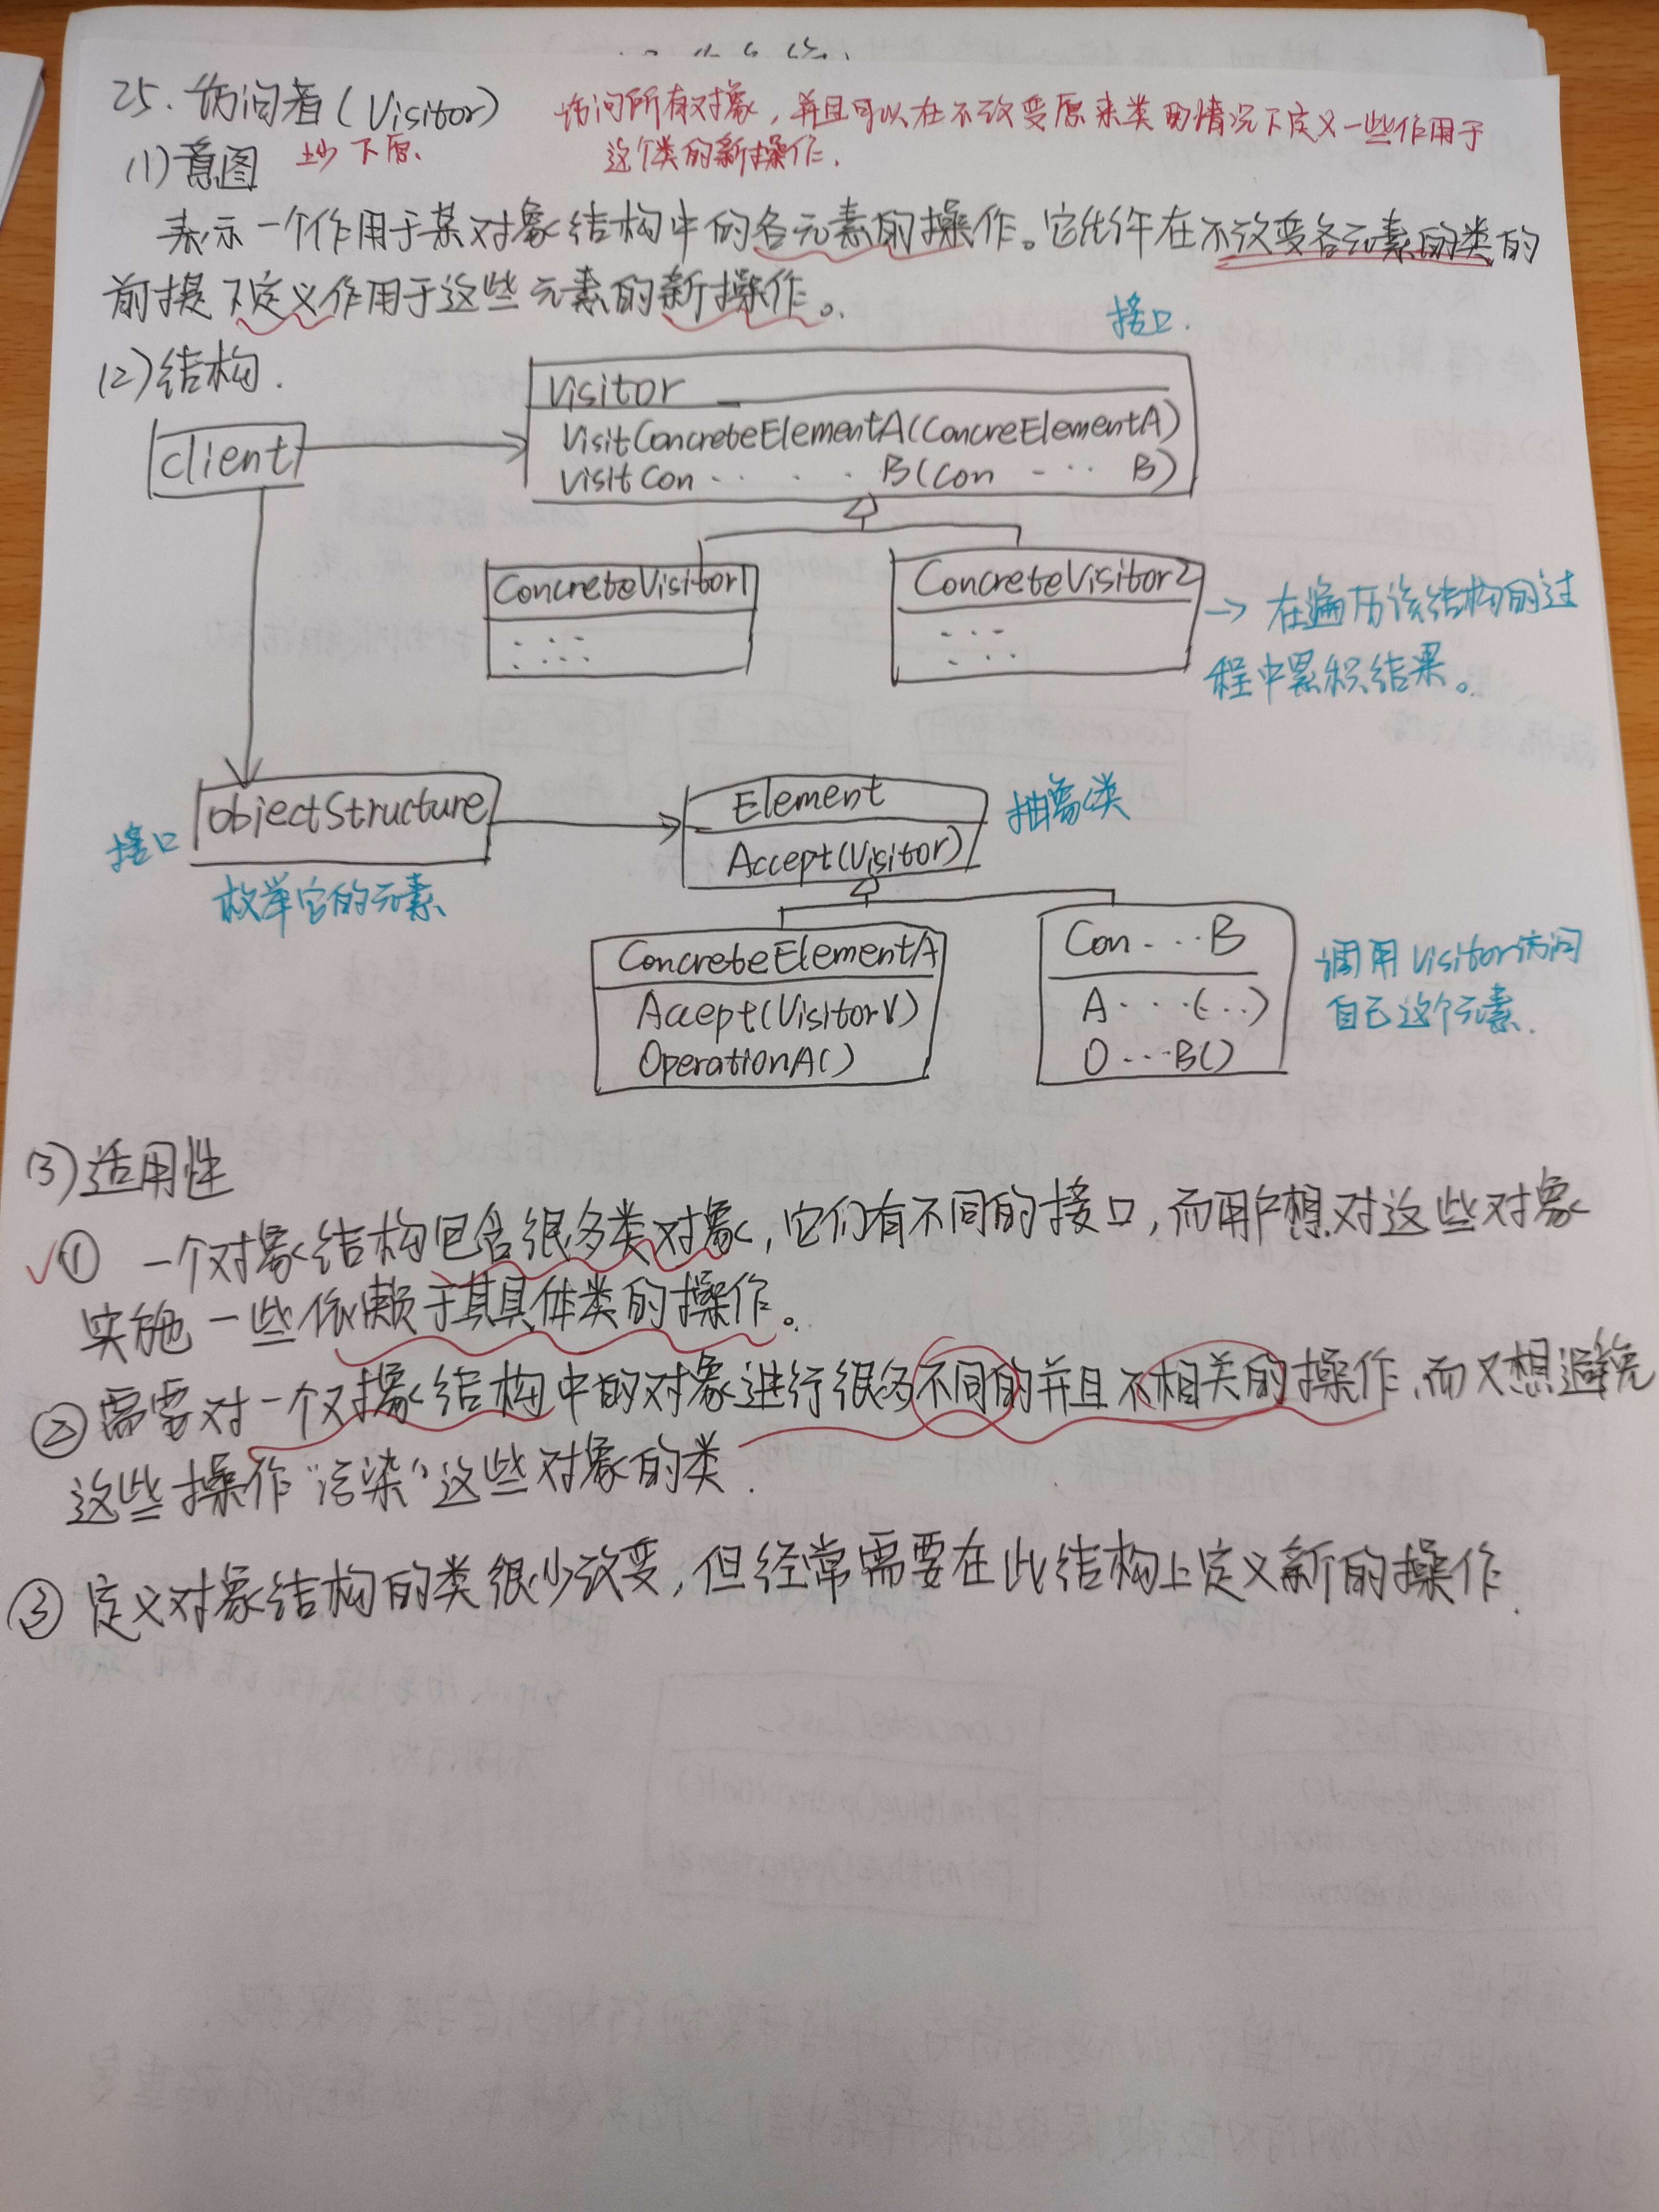 25. 访问者(Visitor)
访问所有对象，并且可以在不改变原来类的情况下定义一些作用于
这个类的新操作.
(1)意图
表示一个作用于某对象结构中的各元素的操作。它允许在不改变各元素的类的
前提下定义作用于这些元素的新操作。
(2)结构.
接口.
Visitor
client
VisitConcreteElementA(ConcreElementA)
VisitCon.....B(Con ... B)
ConcreteVisitor1
ConcreteVisitor2
→ 在遍历该结构的过
程中累积结果。
Element
抽象类
objectStructure
接口
Accept(Visitor)
枚举它的元素
ConcreteElementA
Con...B
调用Visitor访问
自己这个元素.
Accept(VisitorV)
A...(..)
OperationA()
O...B()
(3)适用性
√① 一个对象结构包含很多类对象，它们有不同的接口，而用户想对这些对象
实施一些依赖于其具体类的操作。
②需要对一个对象结构中的对象进行很多不同的并且不相关的操作,而又想避免
这些操作“污染”这些对象的类.
③ 定义对象结构的类很少改变，但经常需要在此结构上定义新的操作.